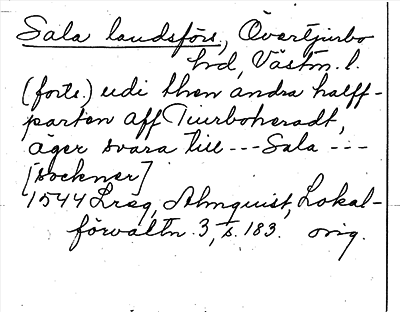 Sala landsförs., Övertjurbo
hd, Västm. l.
(forts.) udi then andra halff-
parten aff Tiurboheradt,
äger svara till --- Sala ---
[sockner]
1544 Lreg, Almquist, Lokal-
förvaltn. 3, s. 183. orig.